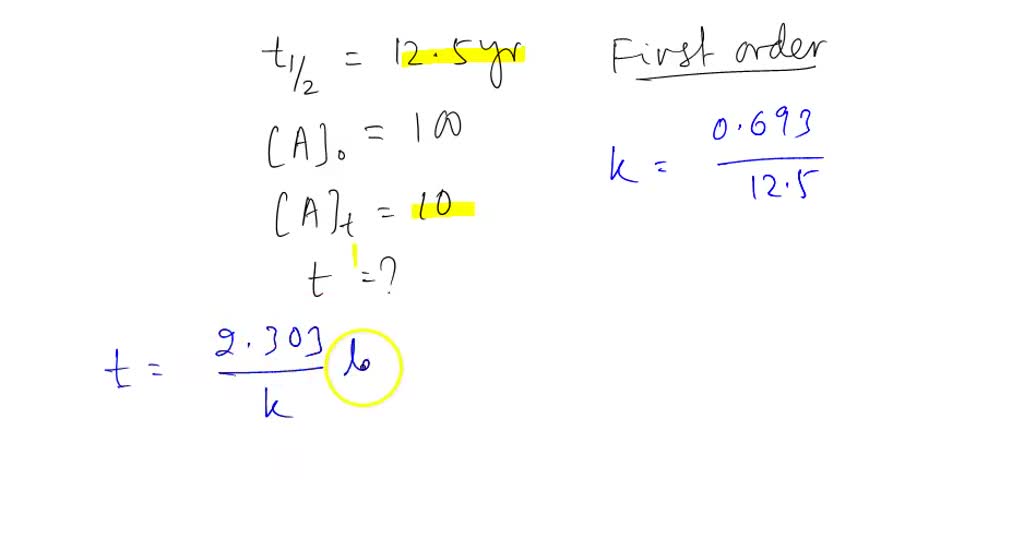 t1/2 = 12.5 yr
First order
[A]₀ = 100
k = 0.693/12.5
[A]t = 10
t = ?
t = 2.303/k lo